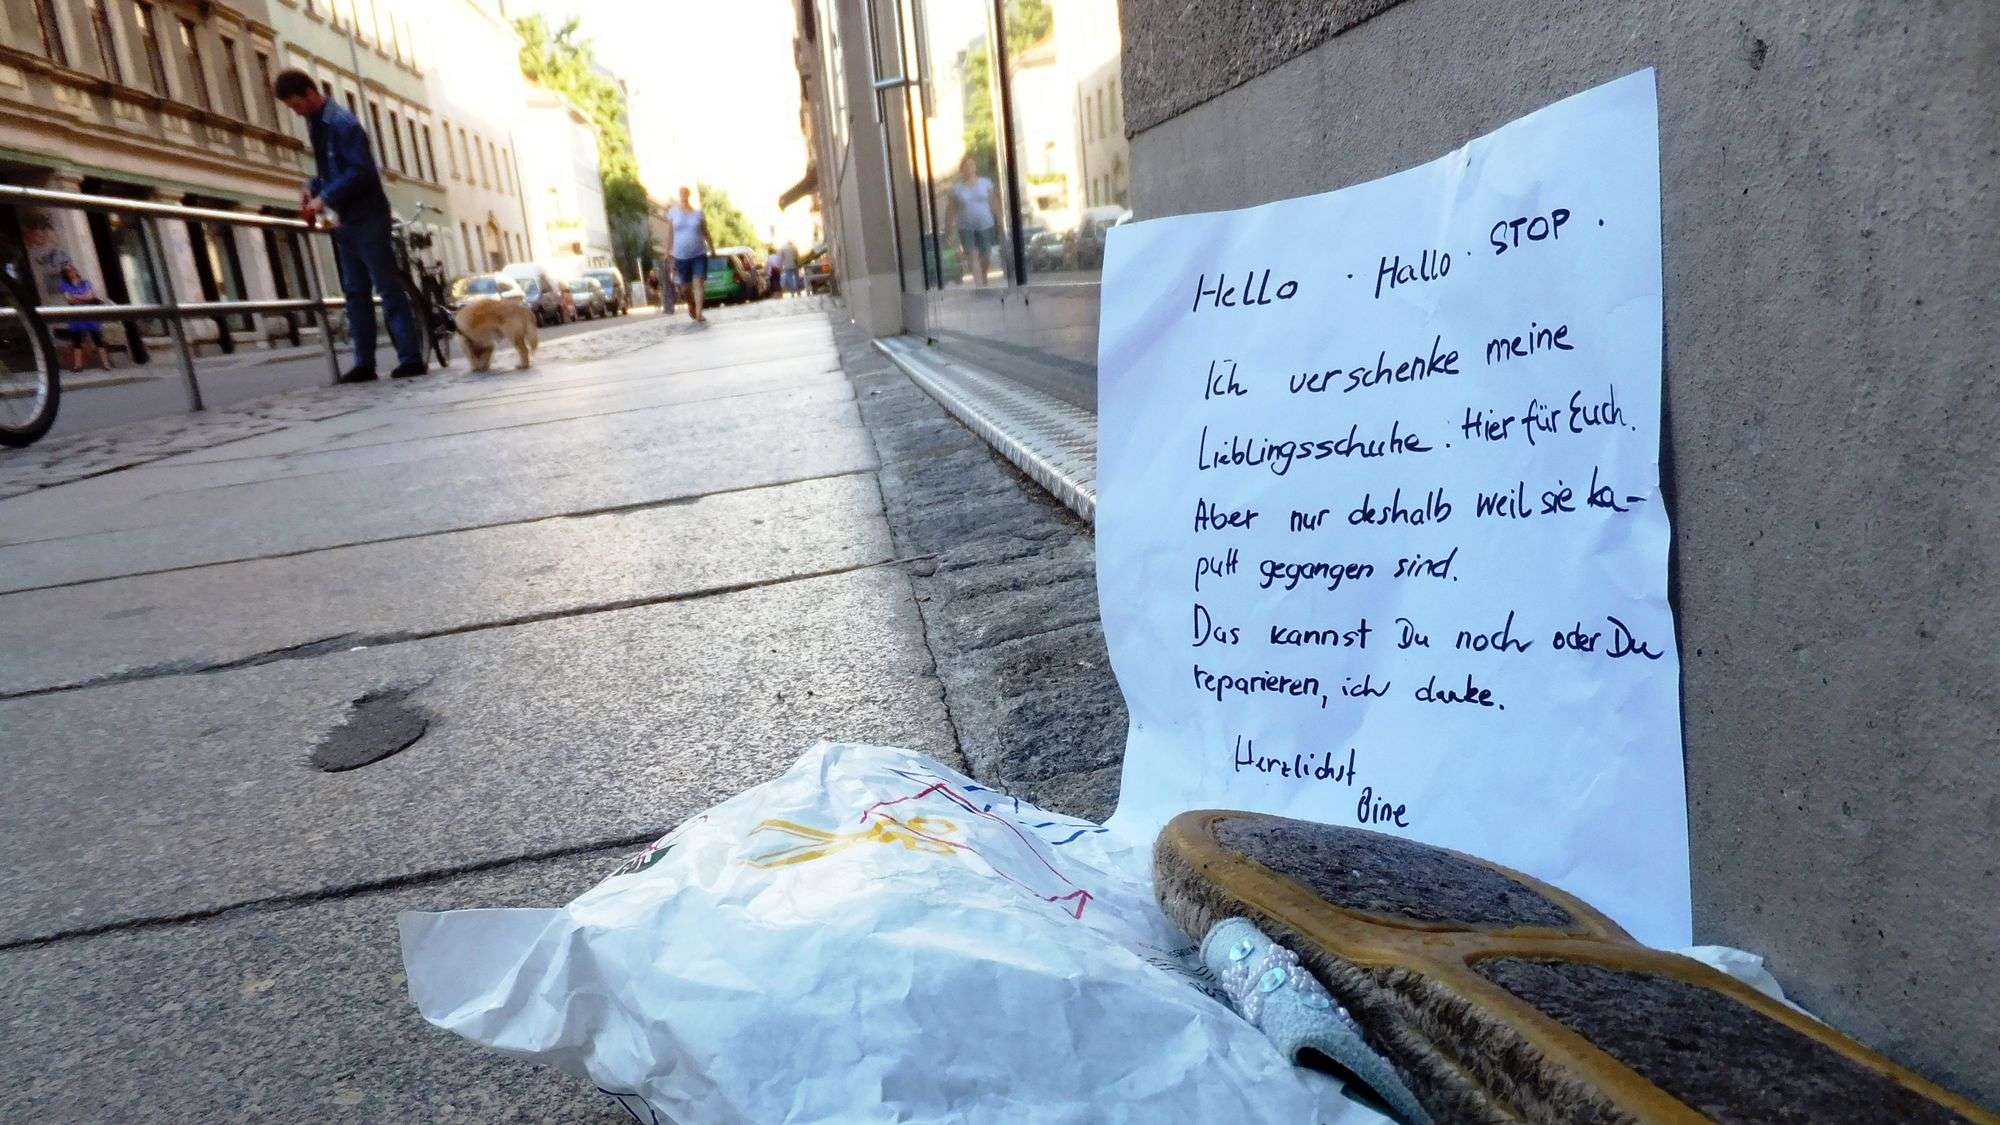 Hello · Hallo · STOP.
Ich verschenke meine
Lieblingsschuhe. Hier für Euch.
Aber nur deshalb weil sie ka-
putt gegangen sind.
Das kannst Du noch oder Du
reparieren, ich danke.
Herzlichst
Bine